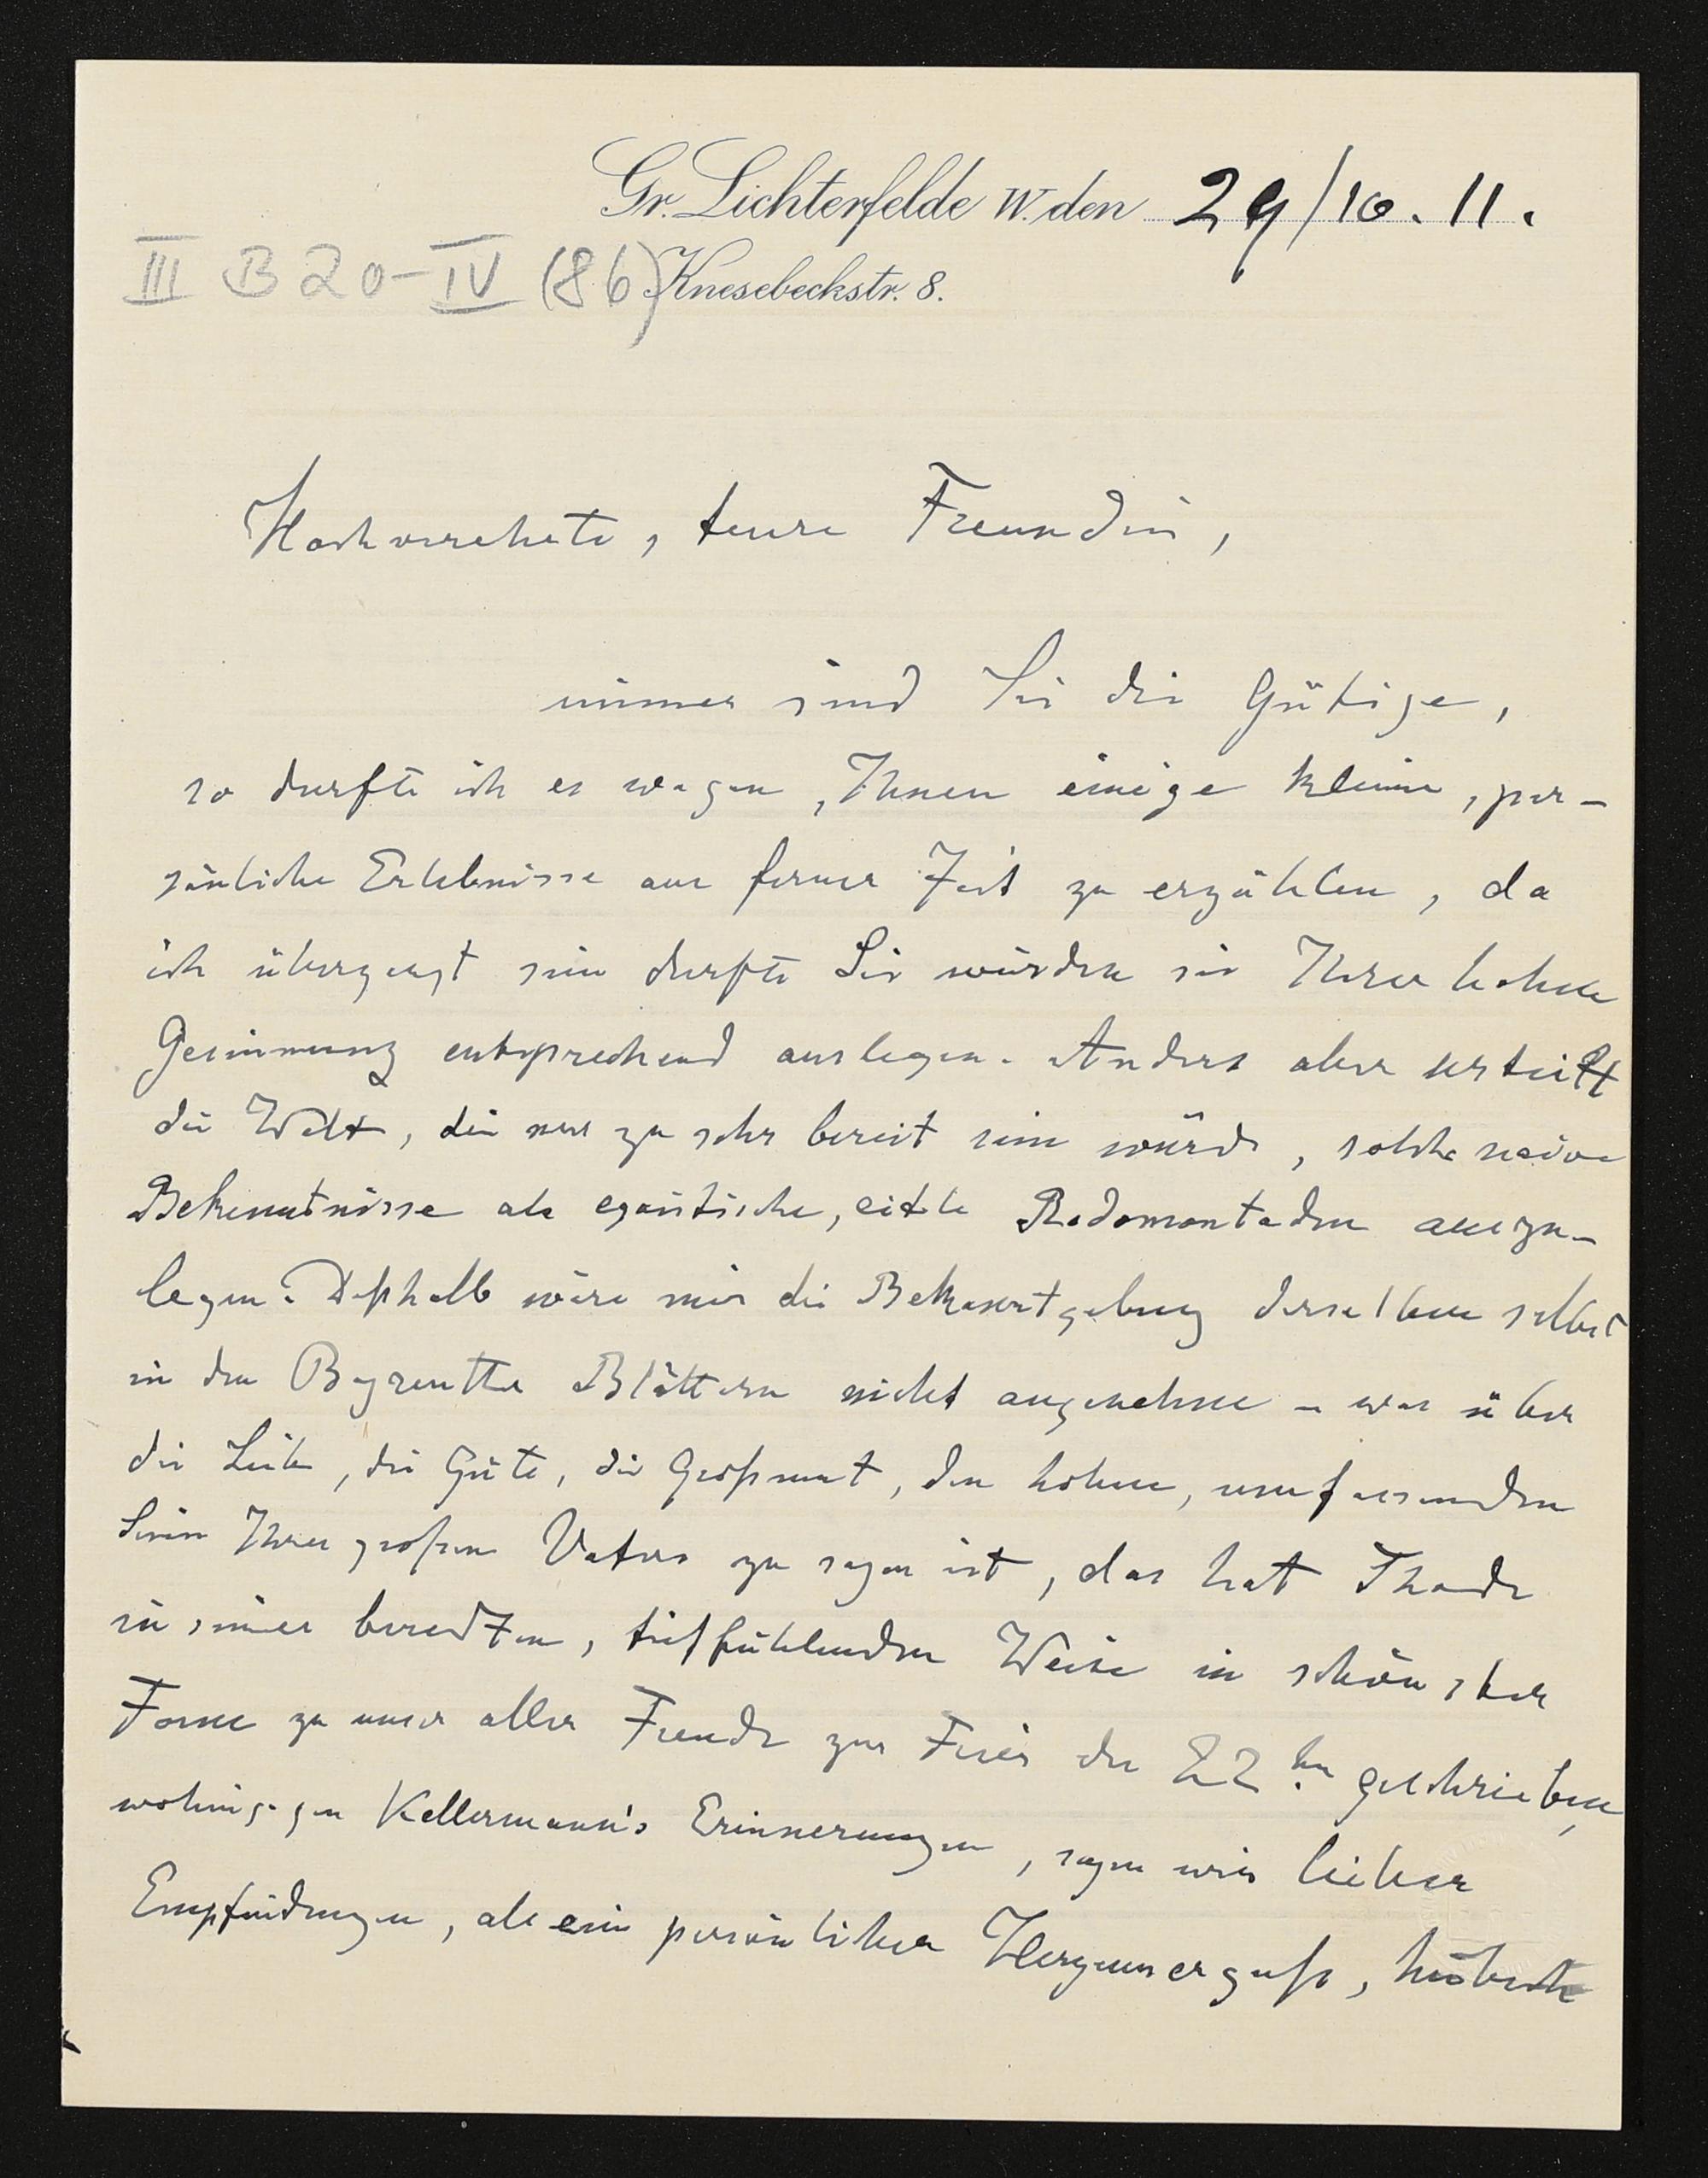 Gr. Lichterfelde W. den 29/10. 11.
III B 20-IV (86) Knesebeckstr. 8.
Hochverehrte, teure Freundin,
immer sind Sie die Gütige,
so durfte ich es wagen, Ihnen einige kleine, per-
sönliche Erlebnisse aus ferner Zeit zu erzählen, da
ich überzeugt sein durfte Sie würden sie Ihrer hohen
Gesinnung entsprechend auslegen. Anders aber urteilt
die Welt, die nur zu sehr bereit sein würde, solche naive
Bekenntnisse als egoistische, eitle Rodomontaden auszu-
legen. Deßhalb wäre mir die Bekanntgebung derselben selbst
in den Bayreuther Blättern nicht angenehm - was über
die Liebe, die Güte, die Großmut, den hohen, umfassenden
Sinn Ihres großen Vaters zu sagen ist, das hat Thode
in seiner beredten, tieffühlenden Weise in schönster
Form zu unser aller Freude zur Feier des 22ten geschrieben,
wohingegen Kellermann's Erinnerungen, sagen wir lieber
Empfindungen, als ein persönlicher Herzenserguß, höchste